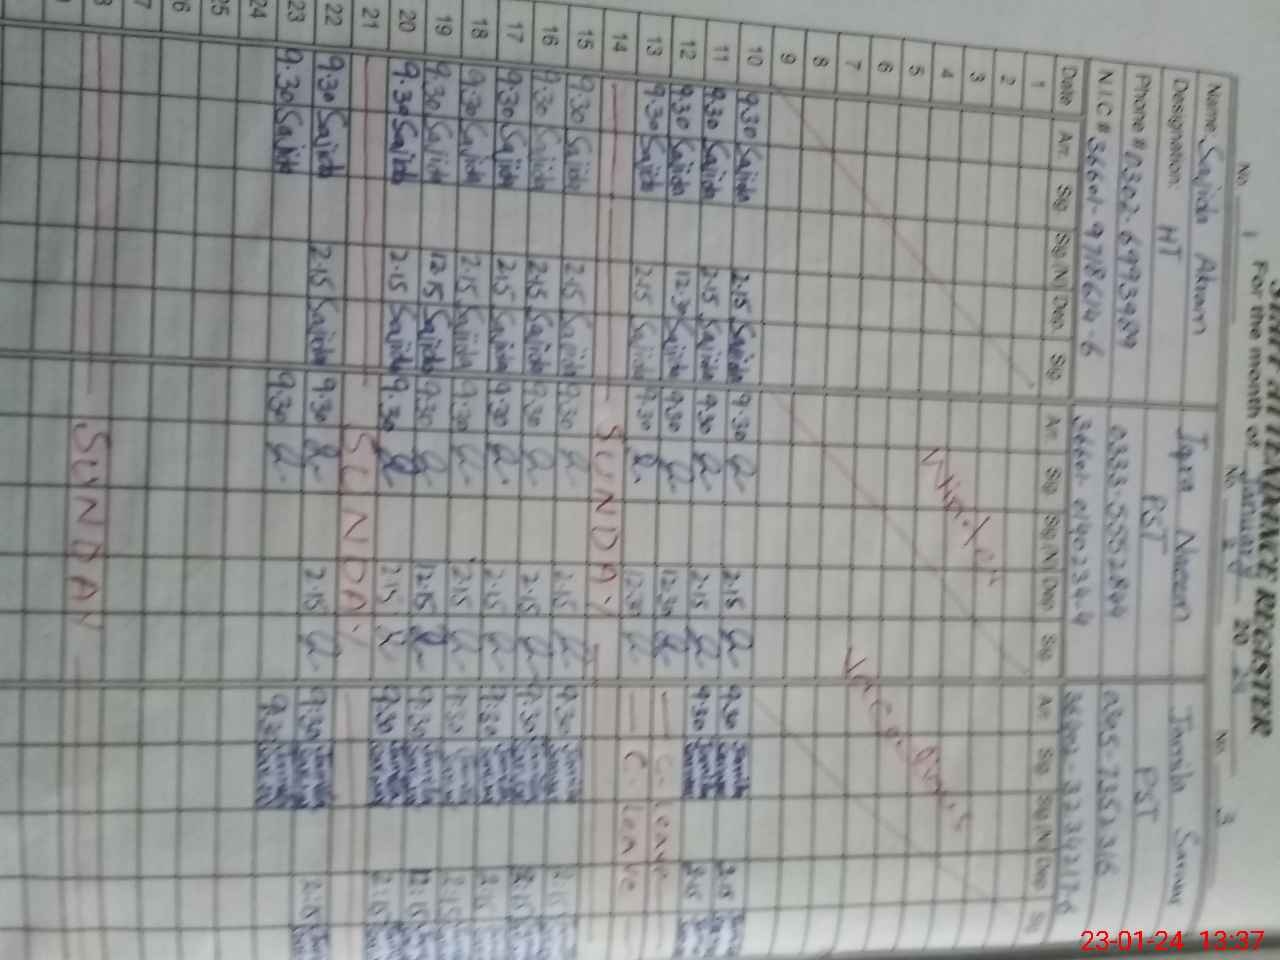 STAFF ATTENDANCE REGISTER
For the month of January 2024
No. 1 No. 2 No. 3
Name: Sajida Akram Iqra Noreen Jamila Sarwar
Designation: HT PST PST
Phone # 0302-6993989
N.I.C #
Date Arr. Sig. Sig (N) Dep. Sig. Arr. Sig. Sig (N) Dep. Sig. Arr. Sig. Sig (N) Dep. Sig
1
2
3
4 Winter
5 Vacations
6
7
8
9
10 9:30 Sajida 2:15 Sajida 9:30 2:15 9:30 Jamila Sarwar 2:15
11 9:30 Sajida 2:15 Sajida 9:30 2:15 9:30 Jamila Sarwar 2:15
12 9:30 Sajida 12:30 Sajida 9:30 12:30 C. Leave
13 9:30 Sajida 2:15 Sajida 9:30 12:30 C. Leave
14 SUNDAY
15 9:30 Sajida 2:15 Sajida 9:30 2:15 9:30 Jamila Sarwar 2:15
16 9:30 Sajida 2:15 Sajida 9:30 2:15 9:30 Jamila Sarwar 2:15
17 9:30 Sajida 2:15 Sajida 9:30 2:15 9:30 Jamila Sarwar 2:15
18 9:30 Sajida 2:15 Sajida 9:30 2:15 9:30 Jamila Sarwar 2:15
19 9:30 Sajida 12:15 Sajida 9:30 12:15 9:30 Jamila Sarwar 12:15
20 9:30 Sajida 2:15 Sajida 9:30 2:15 9:30 Jamila Sarwar 2:15
21 SUNDAY
22 9:30 Sajida 2:15 Sajida 9:30 2:15 9:30 Jamila Sarwar 2:15
23 9:30 Sajida 9:30 9:30 Jamila Sarwar
24
25
26
27
28 SUNDAY
23-01-24 13:37